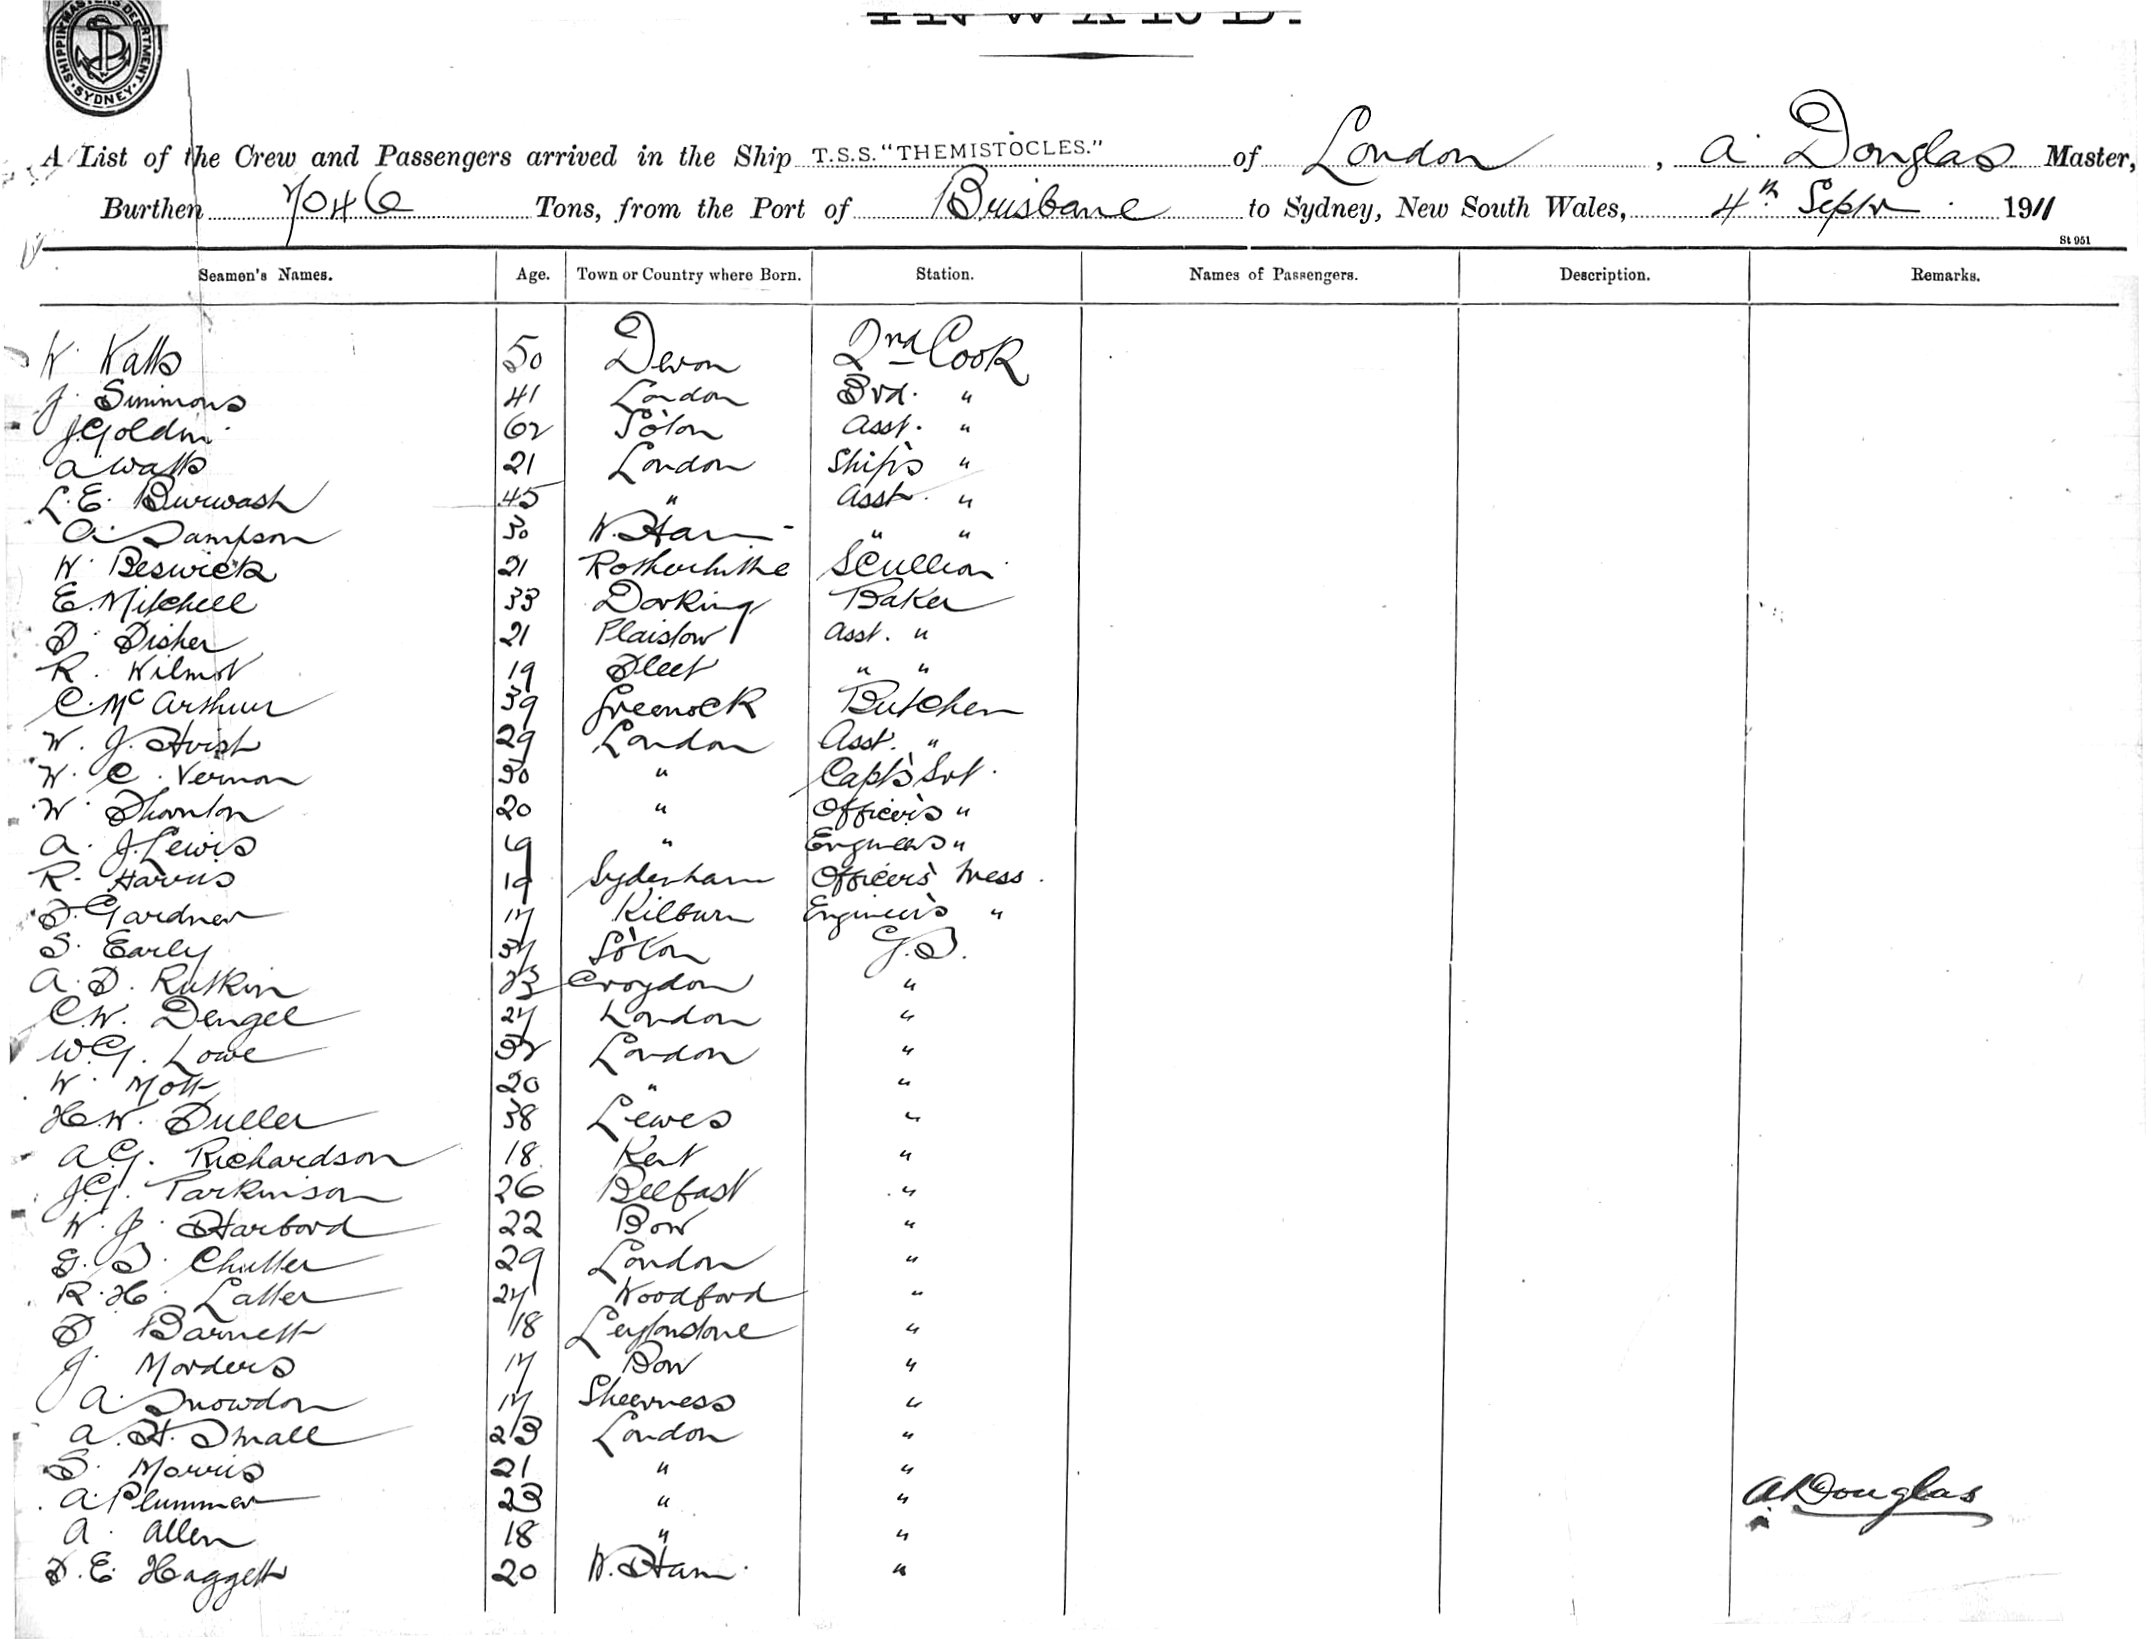 SHIPPING MASTERS DEPARTMENT. SYDNEY.
INWARD.
A List of the Crew and Passengers arrived in the Ship T.S.S. "THEMISTOCLES." of London, A. Douglas Master,
Burthen 7046 Tons, from the Port of Brisbane to Sydney, New South Wales, 4th Septr. 1911
St 951
Seamen's Names. Age. Town or Country where Born. Station. Names of Passengers. Description. Remarks.
W. Watts 50 Devon 2nd Cook
J. Simmons 41 London 3rd. "
J. Goldin 62 So'ton Asst. "
A Watts 21 London Ship's "
L. E. Burwash 45 " Asst. "
A. Sampson 30 W. Ham " "
W. Beswick 21 Rotherhithe Scullion
E. Mitchell 33 Dorking Baker
F. Fisher 21 Plaistow Asst. "
R. Wilmot 19 Fleet " "
C. McArthur 39 Greenock Butcher
W. J. Hoist 29 London Asst. "
W. C. Vernon 30 " Capt's Svt.
W. Thornton 20 " Officer's "
A. J. Lewis 19 " Engineers "
R. Harris 19 Sydenham Officers' Mess.
F. Gardner 17 Kilburn Engineer's "
S. Early 37 So'ton G.S.
A. F. Rutkin 23 Croydon "
C. W. Dengel 27 London "
W. G. Lowe 32 London "
W. Mott 20 " "
H. W. Fuller 38 Lewes "
A. G. Richardson 18 Kent "
J. G. Parkinson 26 Belfast "
W. J. Harbord 22 Bow "
G. S. Chutter 29 London "
R. H. Latter 27 Woodford "
F. Barnett 18 Leytonstone "
J. Morders 17 Bow "
A. Snowdon 17 Sheerness "
A. H. Small 23 London "
S. Morris 21 " "
A. Plummer 23 " "
A. Douglas
A. Allen 18 " "
F. E. Haggett 20 W. Ham. "